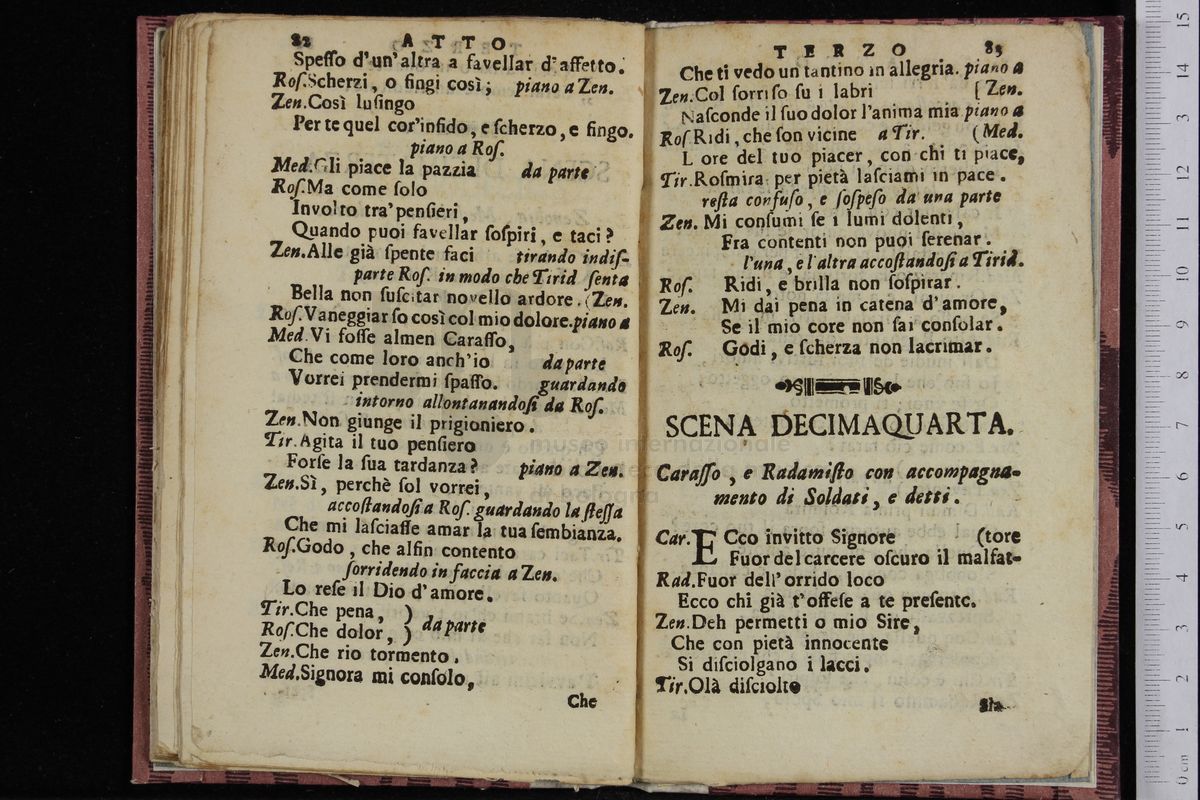 82 ATTO
Speſſo d'un'altra a favellar d'affetto.
Roſ.Scherzi, o fingi così; piano a Zen.
Zen.Così luſingo
Per te quel cor'infido, e ſcherzo, e fingo.
piano a Roſ.
Med.Gli piace la pazzia da parte
Roſ.Ma come ſolo
Involto tra' penſieri,
Quando puoi favellar ſoſpiri, e taci?
Zen.Alle già ſpente faci tirando indiſ-
parte Roſ. in modo che Tirid ſenta
Bella non ſuſcitar novello ardore. (Zen.
Roſ.Vaneggiar ſo così col mio dolore.piano a
Med.Vi foſſe almen Caraſſo,
Che come loro anch'io da parte
Vorrei prendermi ſpaſſo. guardando
intorno allontanandoſi da Roſ.
Zen.Non giunge il prigioniero.
Tir.Agita il tuo penſiero
Forſe la ſua tardanza? piano a Zen.
Zen.Sì, perchè ſol vorrei,
accoſtandoſi a Roſ. guardando la ſteſſa
Che mi laſciaſſe amar la tua ſembianza.
Roſ.Godo, che alfin contento
ſorridendo in faccia a Zen.
Lo reſe il Dio d'amore.
Tir.Che pena, )
Roſ.Che dolor, ) da parte
Zen.Che rio tormento.
Med.Signora mi conſolo,
Che
TERZO 83
Che ti vedo un tantino in allegria. piano a
Zen.Col ſorriſo ſu i labri [Zen.
Naſconde il ſuo dolor l'anima mia piano a
Roſ.Ridi, che ſon vicine a Tir. (Med.
L ore del tuo piacer, con chi ti piace,
Tir.Roſmira per pietà laſciami in pace.
reſta confuſo, e ſoſpeſo da una parte
Zen. Mi conſumi ſe i lumi dolenti,
Fra contenti non puoi ſerenar.
l'una, e l'altra accoſtandoſi a Tirid.
Roſ. Ridi, e brilla non ſoſpirar.
Zen. Mi dai pena in catena d'amore,
Se il mio core non ſai conſolar.
Roſ. Godi, e ſcherza non lacrimar.
SCENA DECIMAQUARTA.
Caraſſo, e Radamiſto con accompagna-
mento di Soldati, e detti.
Car. ECco invitto Signore (tore
Fuor del carcere oſcuro il malfat-
Rad.Fuor dell'orrido loco
Ecco chi già t'offeſe a te preſente.
Zen.Deh permetti o mio Sire,
Che con pietà innocente
Si diſciolgano i lacci.
Tir.Olà diſciolto
Sia
museo internazionale
di bologna
15
14
13
12
11
10
9
8
7
6
5
4
3
2
1
0 cm